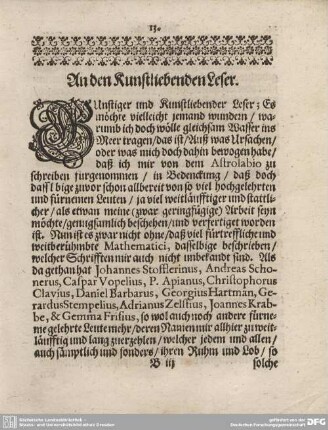 13.
An den Kunstliebenden Leser.
GUnstiger und Kunstliebender Leser; Es
möchte vielleicht jemand wundern / wa-
rumb ich doch wölle gleichsam Wasser ins
Meer tragen / das ist / Auß was Ursachen /
oder was mich doch dahin bewogen habe /
daß ich mir von dem Astrolabio zu
schreiben fürgenommen / in Bedenckung / daß doch
dasselbige zuvor schon allbereit von so viel hochgelehrten
und fürnemen Leuten / ja viel weitläufftiger und stattli-
cher / als etwan meine (zwar geringfügige) Arbeit seyn
möchte / genugsamlich beschehen / und verfertiget worden
ist. Nun ist es zwar nicht ohne / daß viel fürtreffliche und
weitberühmbte Mathematici, dasselbige beschrieben /
welcher Schrifften mir auch nicht unbekandt sind. Als
da gethan hat Johannes Stofflerinus, Andreas Scho-
nerus, Caspar Vopelius, P. Apianus, Christophorus
Clavius, Daniel Barbarus, Georgius Hartman, Ge-
rardus Stempelius, Adrianus Zelsius, Joannes Krab-
be, & Gemma Frisius, so wol auch noch andere fürne-
me gelehrte Leute mehr / deren Namen mir allhier zu weit-
läufftig und lang zu erzehlen / welcher jedem und allen /
auch sämptlich und sonders / ihren Ruhm und Lob / so
B iij
solche